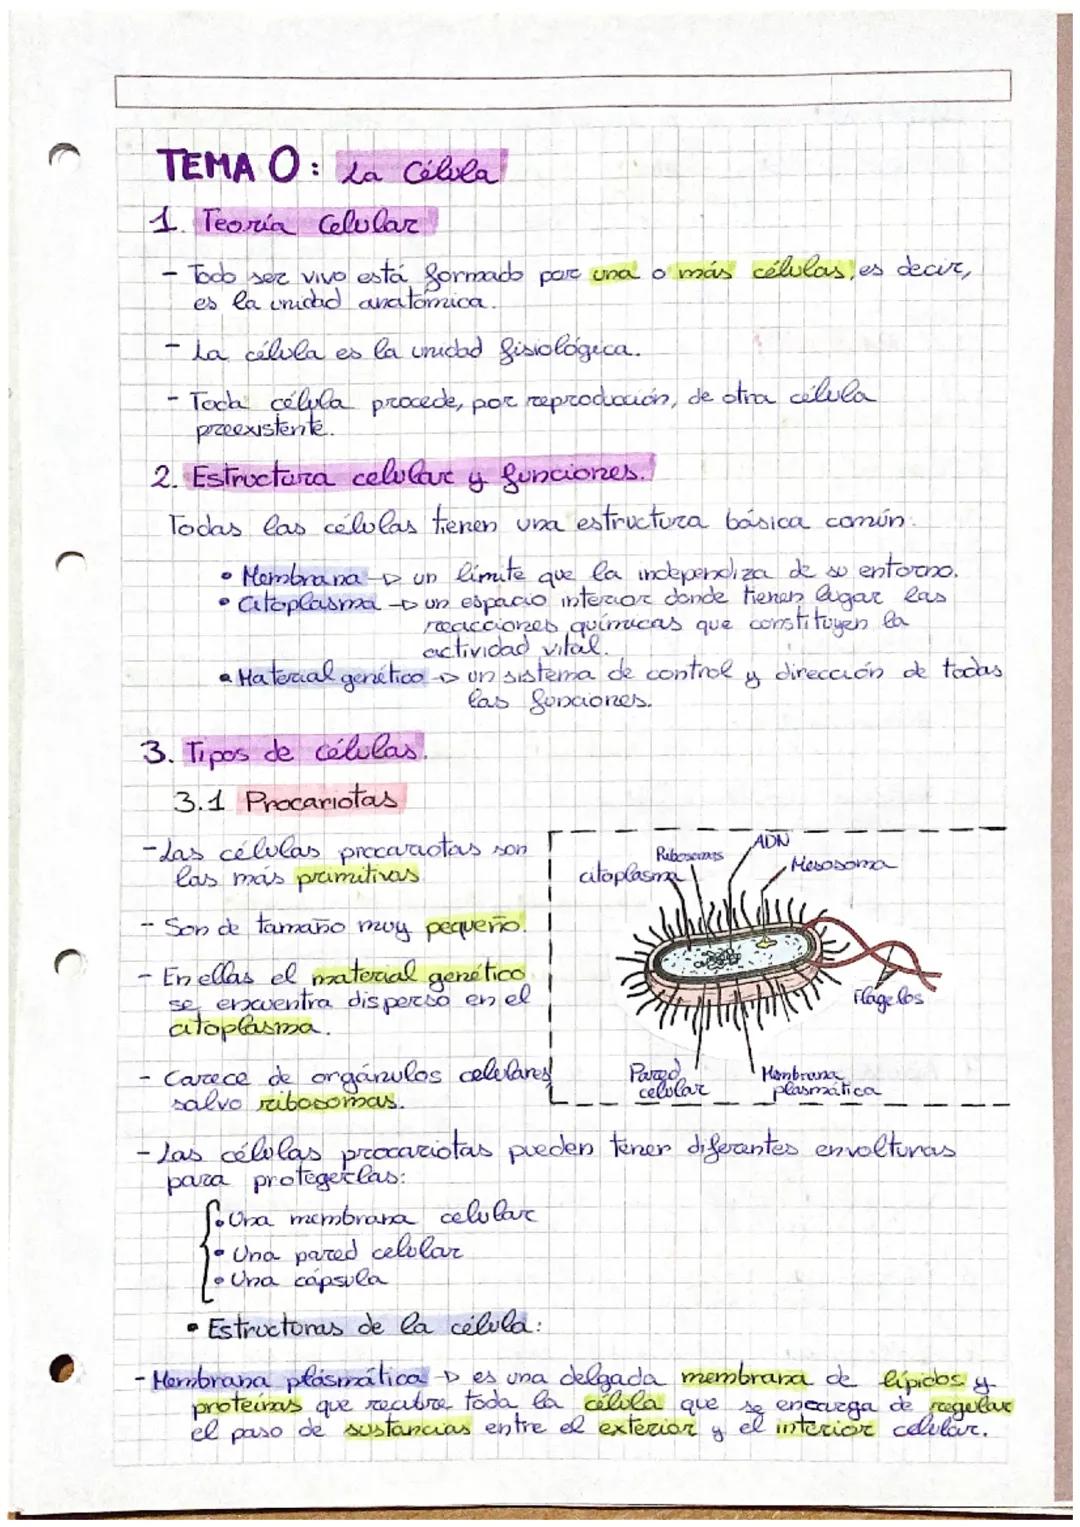 TEMA 0: La Célula
1. Teoría Celular
- Todo ser vivo está formado por una o más células, es decir,
es la unidad anatómica.
- La célula es la unidad fisiológica.
- Toda célula procede, por reproducción, de otra célula
preexistente.
2. Estructura celular y funciones.
Todas las células tienen una estructura básica común.
• Membrana → un límite que la independiza de su entorno.
• Citoplasma → un espacio interior donde tienen lugar las
reacciones químicas que constituyen la
actividad vital.
• Material genético → un sistema de control y dirección de todas
las funciones.
3. Tipos de células.
3.1 Procariotas
- Las células procariotas son
las más primitivas
- Son de tamaño muy pequeño.
- En ellas el material genético
se encuentra disperso en el
citoplasma.
- Carece de orgánulos celulares
salvo ribosomas.
citoplasma
Ribosomas
ADN
Mesosoma
Flagelos
Pared
celular
Membrana
plasmática
- Las células procariotas pueden tener diferentes envolturas
para protegerlas:
• Una membrana celular
• Una pared celular
• Una cápsula
• Estructuras de la célula:
- Membrana plásmática → es una delgada membrana de lípidos y
proteínas que recubre toda la célula que se encarga de regular
el paso de sustancias entre el exterior y el interior celular.